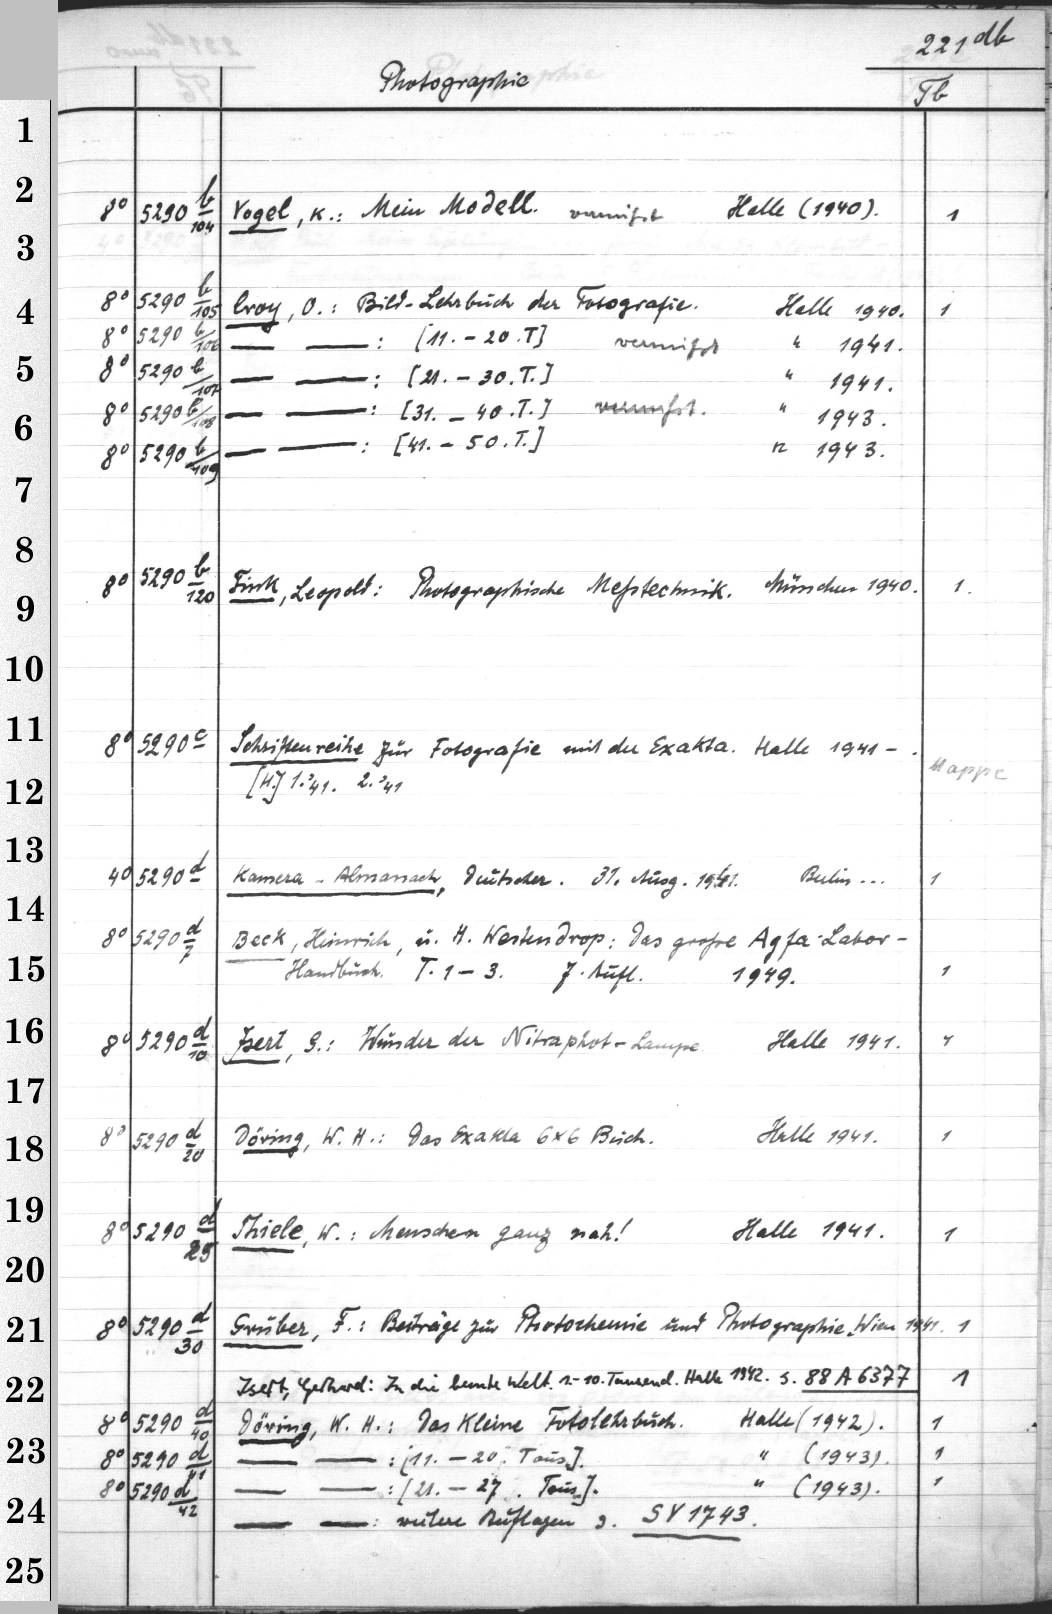 221 db
Photographie
Tb
1
2
8° 5290 b/104 Vogel, K.: Mein Modell. vermißt Halle (1940). 1
3
4
8° 5290 b/105 Croy, O.: Bild-Lehrbuch der Fotografie. Halle 1940. 1
8° 5290 b/106 — — : [11. - 20. T] vermißt " 1941.
5
8° 5290 b/107 — — : [21. - 30. T.] " 1941.
8° 5290 b/108 — — : [31. - 40. T.] vermißt. " 1943.
6
8° 5290 b/109 — — : [41. - 50. T.] " 1943.
7
8
8° 5290 b/120 Fink, Leopold: Photographische Meßtechnik. München 1940. 1.
9
10
11
8° 5290 c Schriftenreihe zur Fotografie mit der Exakta. Halle 1941 - .
Mappe
[H.] 1.'41. 2.'41
12
13
4° 5290 d Kamera-Almanach, Deutscher. 31. Ausg. 1941. Berlin ... 1
14
8° 5290 d/7 Beck, Heinrich, u. H. Westendrop: Das große Agfa-Labor-
15
Handbuch. T. 1-3. 7. Aufl. 1949. 1
16
8° 5290 d/10 Isert, G.: Wunder der Nitraphot-Lampe Halle 1941. 1
17
18
8° 5290 d/20 Döring, W. H.: Das Exakta 6x6 Buch. Halle 1941. 1
19
8° 5290 d/25 Thiele, W.: Menschen ganz nah! Halle 1941. 1
20
21
8° 5290 d/30 Gruber, F.: Beiträge zur Photochemie und Photographie. Wien 1941. 1
22
Isert, Gerhard: In die bunte Welt. 1-10. Tausend. Halle 1942. s. 88 A 6377 1
8° 5290 d/40 Döring, W. H.: Das Kleine Fotolehrbuch. Halle (1942). 1
23
8° 5290 d/41 — — : [11. - 20. Taus]. " (1943). 1
8° 5290 d/42 — — : [21. - 27. Taus.]. " (1943). 1
24
— — : weitere Auflagen s. SV 1743.
25